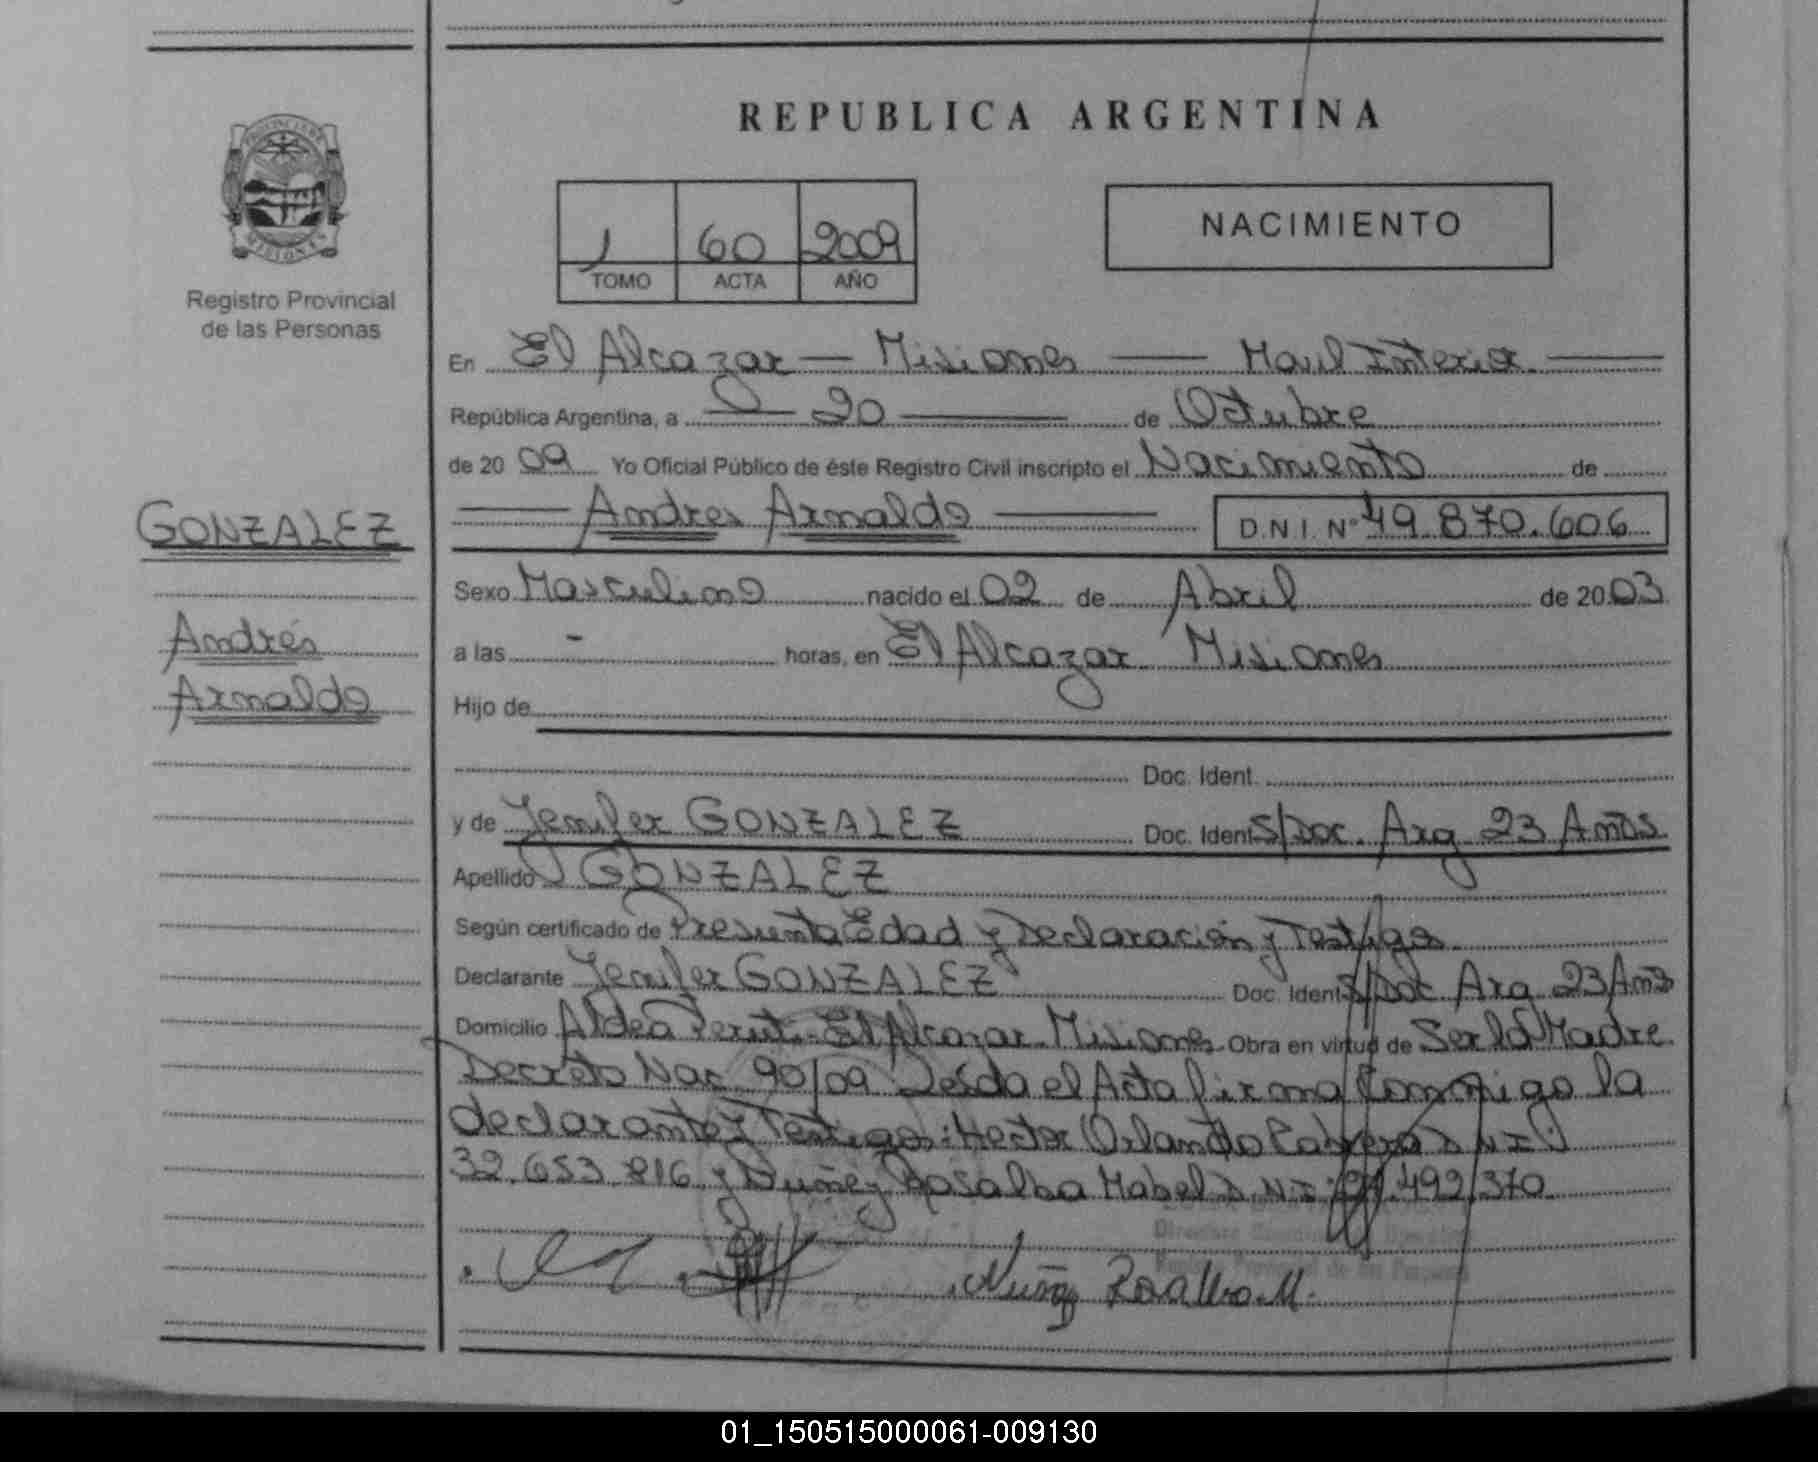 REPUBLICA ARGENTINA
PROVINCIA DE
MISIONES
Registro Provincial
de las Personas
1 60 2009
TOMO ACTA AÑO
NACIMIENTO
En El Alcazar — Misiones — Movil Interior —
República Argentina, a — 20 — de Octubre
de 20 09 Yo Oficial Público de éste Registro Civil inscripto el Nacimiento de
GONZALEZ
— Andres Arnaldo — D.N.I. Nº 49.870.606
Sexo Masculino nacido el 02 de Abril de 20 03
Andrés
a las - horas, en El Alcazar Misiones
Arnaldo
Hijo de
Doc. Ident.
y de Jenifer GONZALEZ Doc. Ident S/Doc. Arg 23 Años
Apellido GONZALEZ
Según certificado de Presunta Edad y Declaración y Testigos
Declarante Jenifer GONZALEZ Doc. Ident S/Doc Arg 23 Años
Domicilio Aldea Peruti - El Alcazar Misiones Obra en virtud de Ser la Madre
Decreto Nac 90/09 Leida el Acta firma Conmigo la
declarante y Testigos: Hector Orlando Cabrera D N I
32.653.816 y Nuñez Rosalba Mabel D.N.I: .492.370
Registro Provincial de las Personas
Nuñez Rosalba M.
01_150515000061-009130